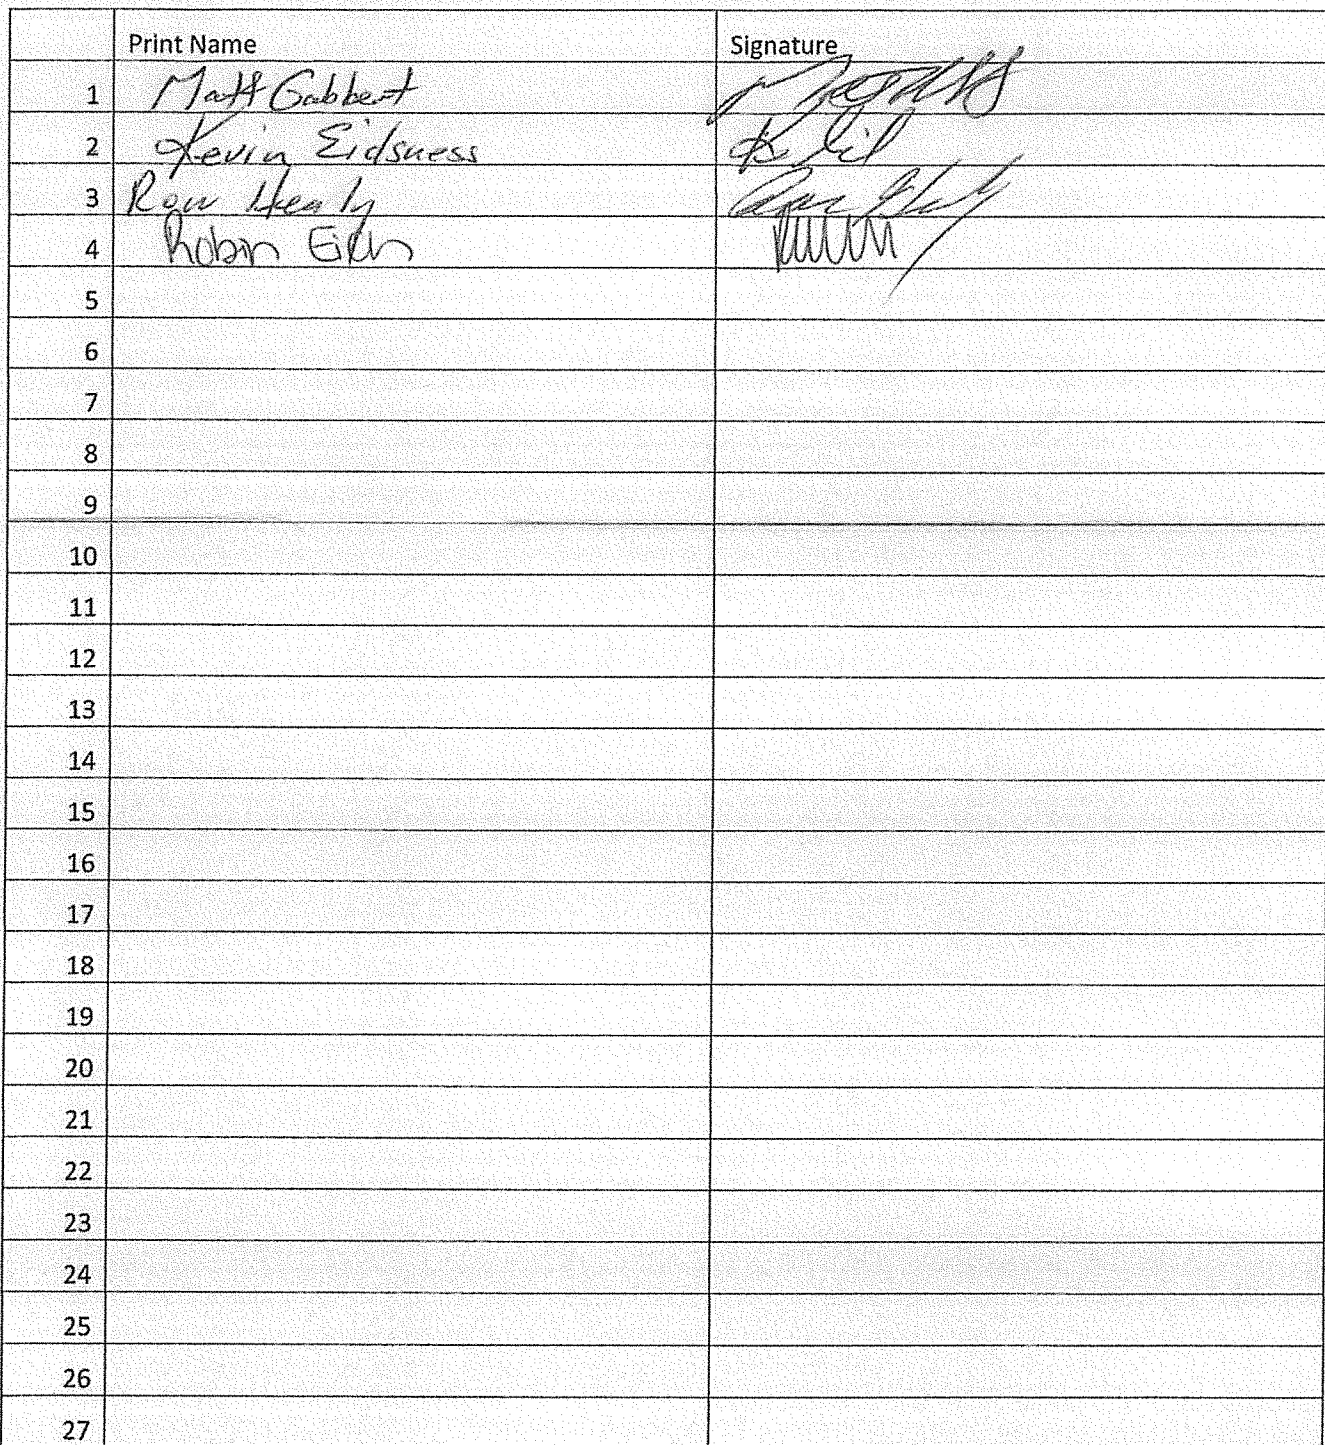 Print Name Signature
1 Matt Gabbert
2 Kevin Eidsness
3 Ron Healy
4 Robin
5
6
7
8
9
10
11
12
13
14
15
16
17
18
19
20
21
22
23
24
25
26
27